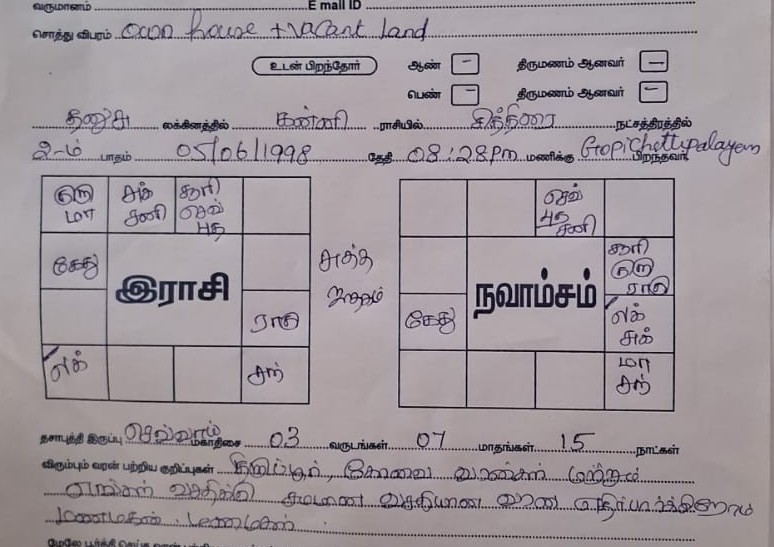 வருமானம் E mail ID
சொத்து விபரம் Own house + vacant land
உடன் பிறந்தோர் ஆண் – திருமணம் ஆனவர் –
பெண் – திருமணம் ஆனவர் –
தனுசு லக்கினத்தில் கன்னி ராசியில் சித்திரை நட்சத்திரத்தில்
2-ம் பாதம் 05/06/1998 தேதி 08:28pm மணிக்கு Gopichettipalayam பிறந்தவர்
குரு மா
சுக் சனி
சூரி செவ் புத
கேது
இராசி
ராகு
லக்
சந்
சுத்த ஜாதகம்
செவ் புத சனி
சூரி குரு ராகு
கேது
நவாம்சம்
லக் சுக்
மா சந்
தசாபுத்தி இருப்பு செவ்வாய் மகாதிசை 03 வருடங்கள் 07 மாதங்கள் 15 நாட்கள்
விரும்பும் வரன் பற்றிய குறிப்புகள் திருப்பூர், கோவை வரன்கள் மற்றும்
எங்கள் வசதிக்கு சமமான வசதியான வரன் எதிர்பார்க்கிறோம்
மணமகன்